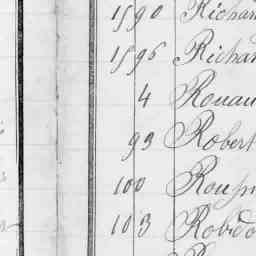 1590 Richar
1596 Richar
4 Rouau
99 Robert
100
103 Robido